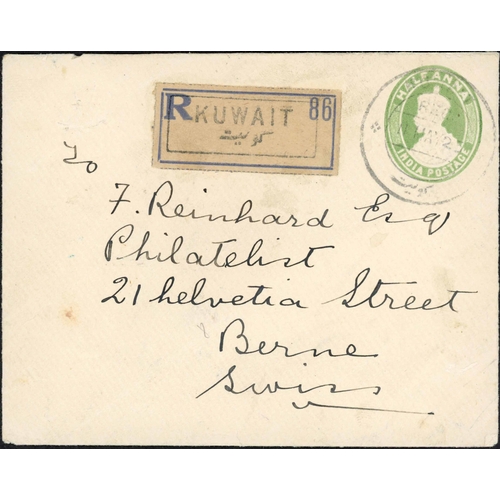 R KUWAIT 86
كويت
HALF ANNA
INDIA POSTAGE
كويت
To
F. Reinhard Esq
Philatelist
21 helvetia Street
Berne
Swiss